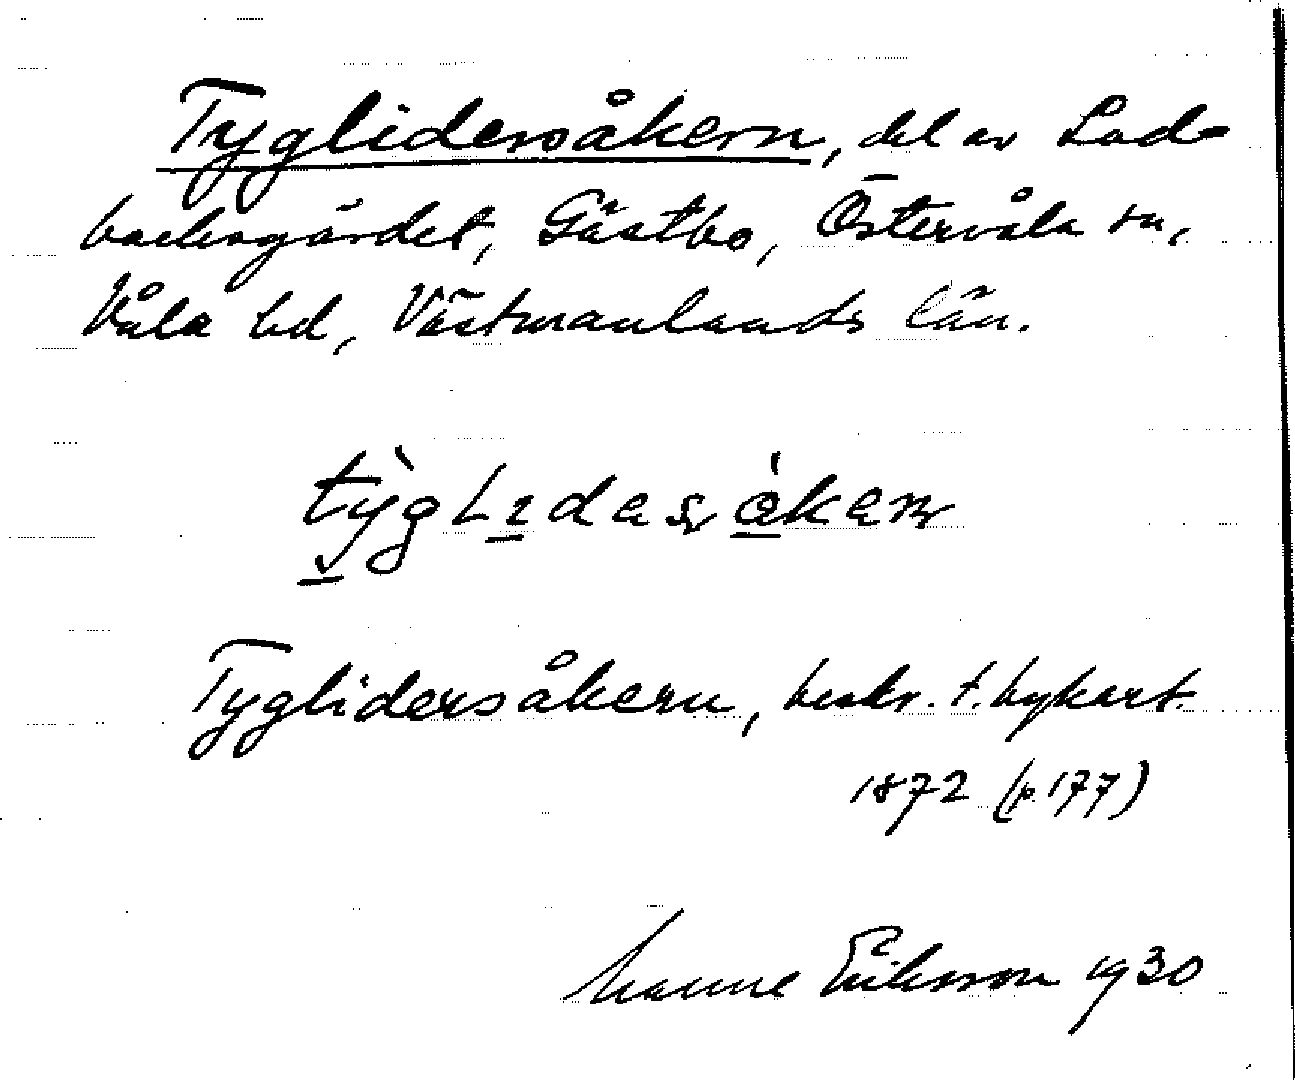 Tyglidersåkern, del av Lad-
backsgärdet, Gästbo, Östervåla sn,
Våla hd, Västmanlands län.
tỳgLɩdasåkaɳ
Tyglidersåkern, beskr. t. bykart.
1872 (p. 177)
Manne Eriksson 1930